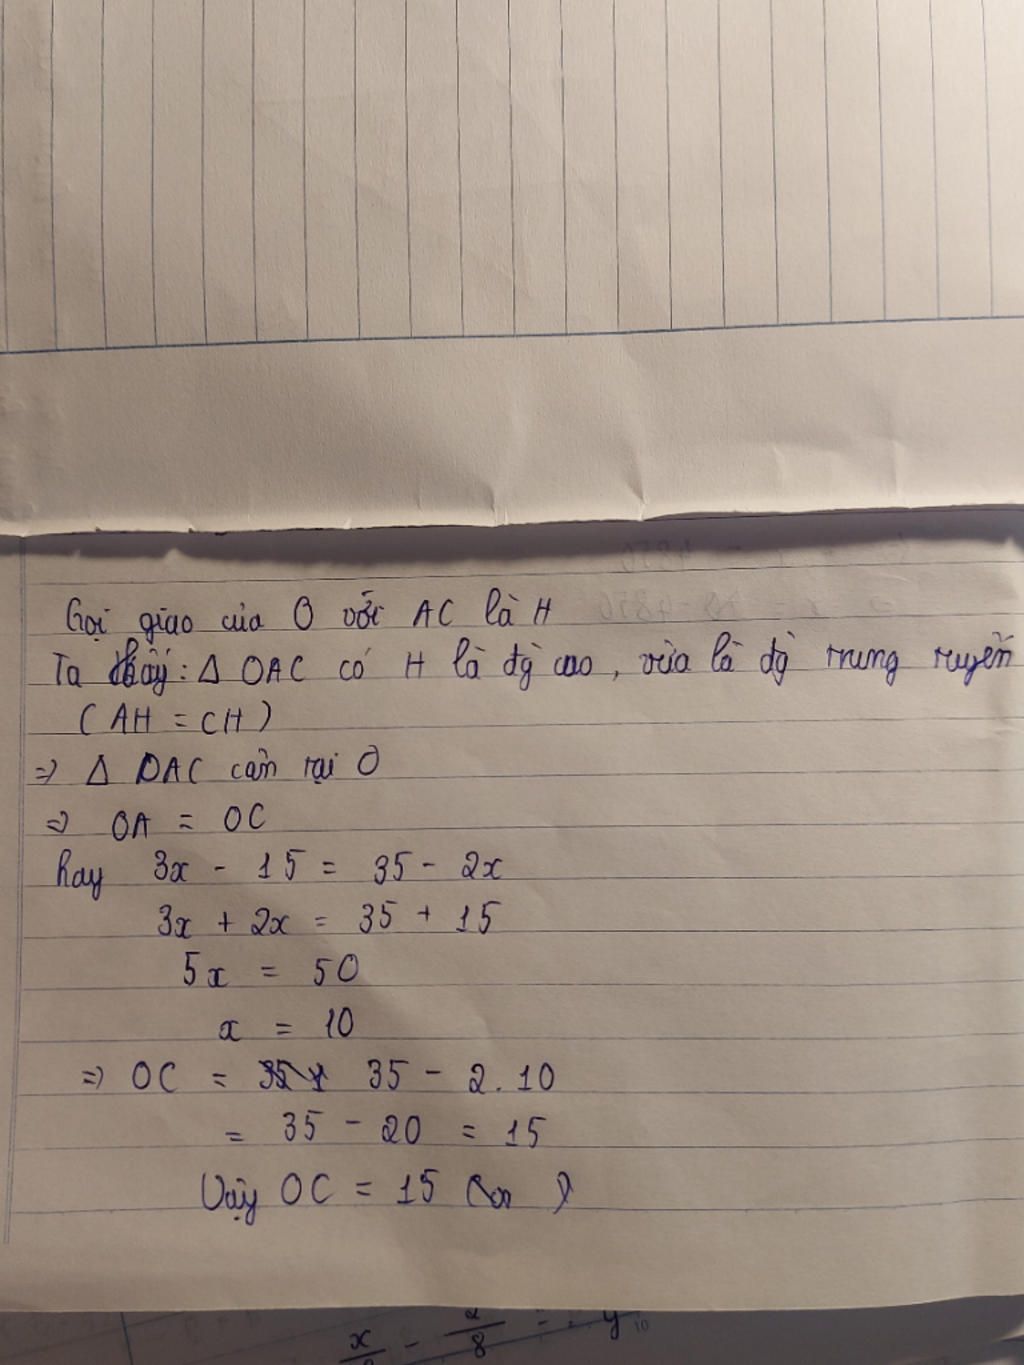 Gọi giao của O với AC là H
Ta thấy: Δ OAC có H là đg cao, vừa là đg trung tuyến
(AH = CH)
=> Δ OAC cân tại O
=> OA = OC
hay 3x - 15 = 35 - 2x
3x + 2x = 35 + 15
5x = 50
x = 10
=> OC = 35 - 2.10
= 35 - 20 = 15
Vậy OC = 15
x/ - /8 = y